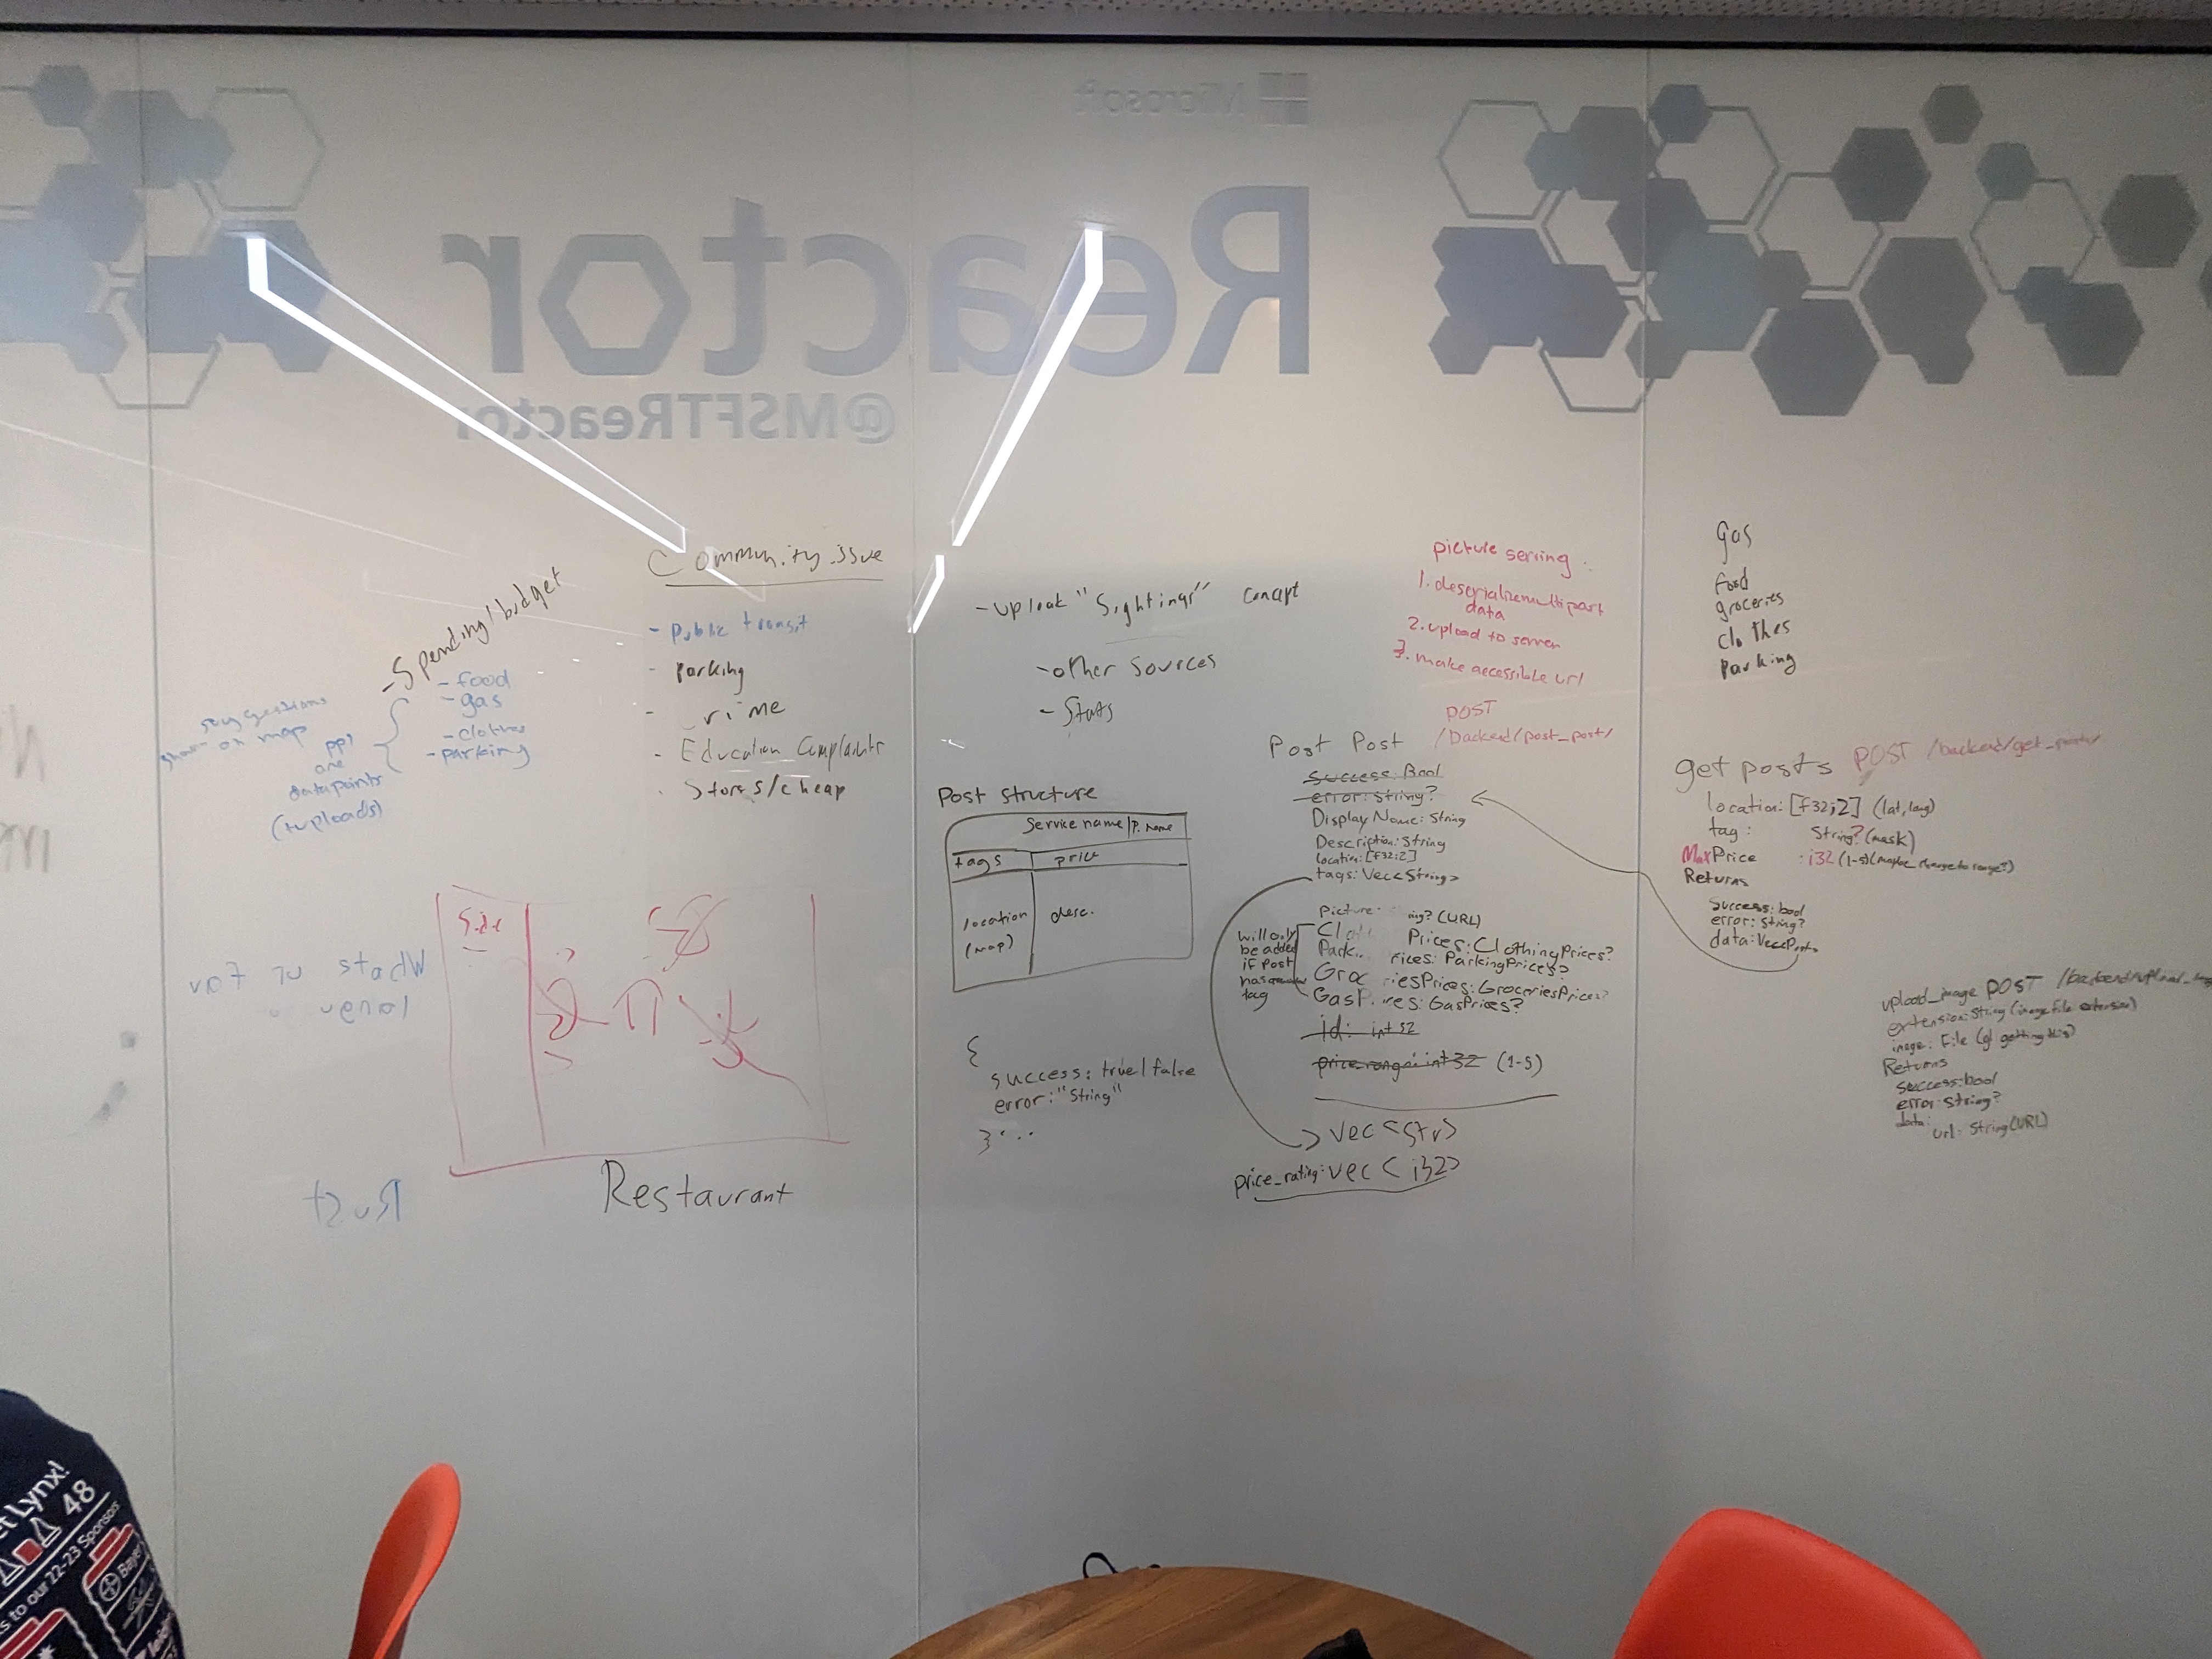 Microsoft
Reactor
@MSFTReactor
Community issue
- Public transit
- parking
- rime
- Education Complaints
Stores/cheap
- Spending/budget
- food
- gas
- clothes
- parking
suggestions
on map
ppl
are
datapoints
(+uploads)
Restaurant
Rust
- upload "Sightings" concept
- other sources
- Stats
Post structure
Service name | P. name
tags | price
location
(map)
desc.
{
success: true/false
error: "String"
} ...
picture serving:
1. deserialize multipart
data
2. upload to server
3. make accessible url
POST
/backend/post_post/
Post Post
Success: Bool
error: string?
Display Name: String
Description: String
location: [f32;2]
tags: Vec<String>
Picture: ing? (URL)
Clot Prices: ClothingPrices?
Park rices: ParkingPrices?
Groc riesPrices: GroceriesPrices?
GasP ices: GasPrices?
will only
be added
if post
has
tag
id: int 32
price range: int 32 (1-5)
Vec<str>
price_rating: vec<i32>
Gas
food
groceries
clothes
parking
get posts POST /backend/get_posts/
location: [f32;2] (lat, long)
tag: String? (mask)
Max Price : i32 (1-5) (maybe change to range?)
Returns
Success: bool
error: String?
data: Vec<Post>
upload_image POST
extension: String (image file extension)
image: File (gl getting this)
Returns
success: bool
error: string?
data:
url: String (URL)
et Lynx!
48
s to our 22-23 Sponsors
Bayer